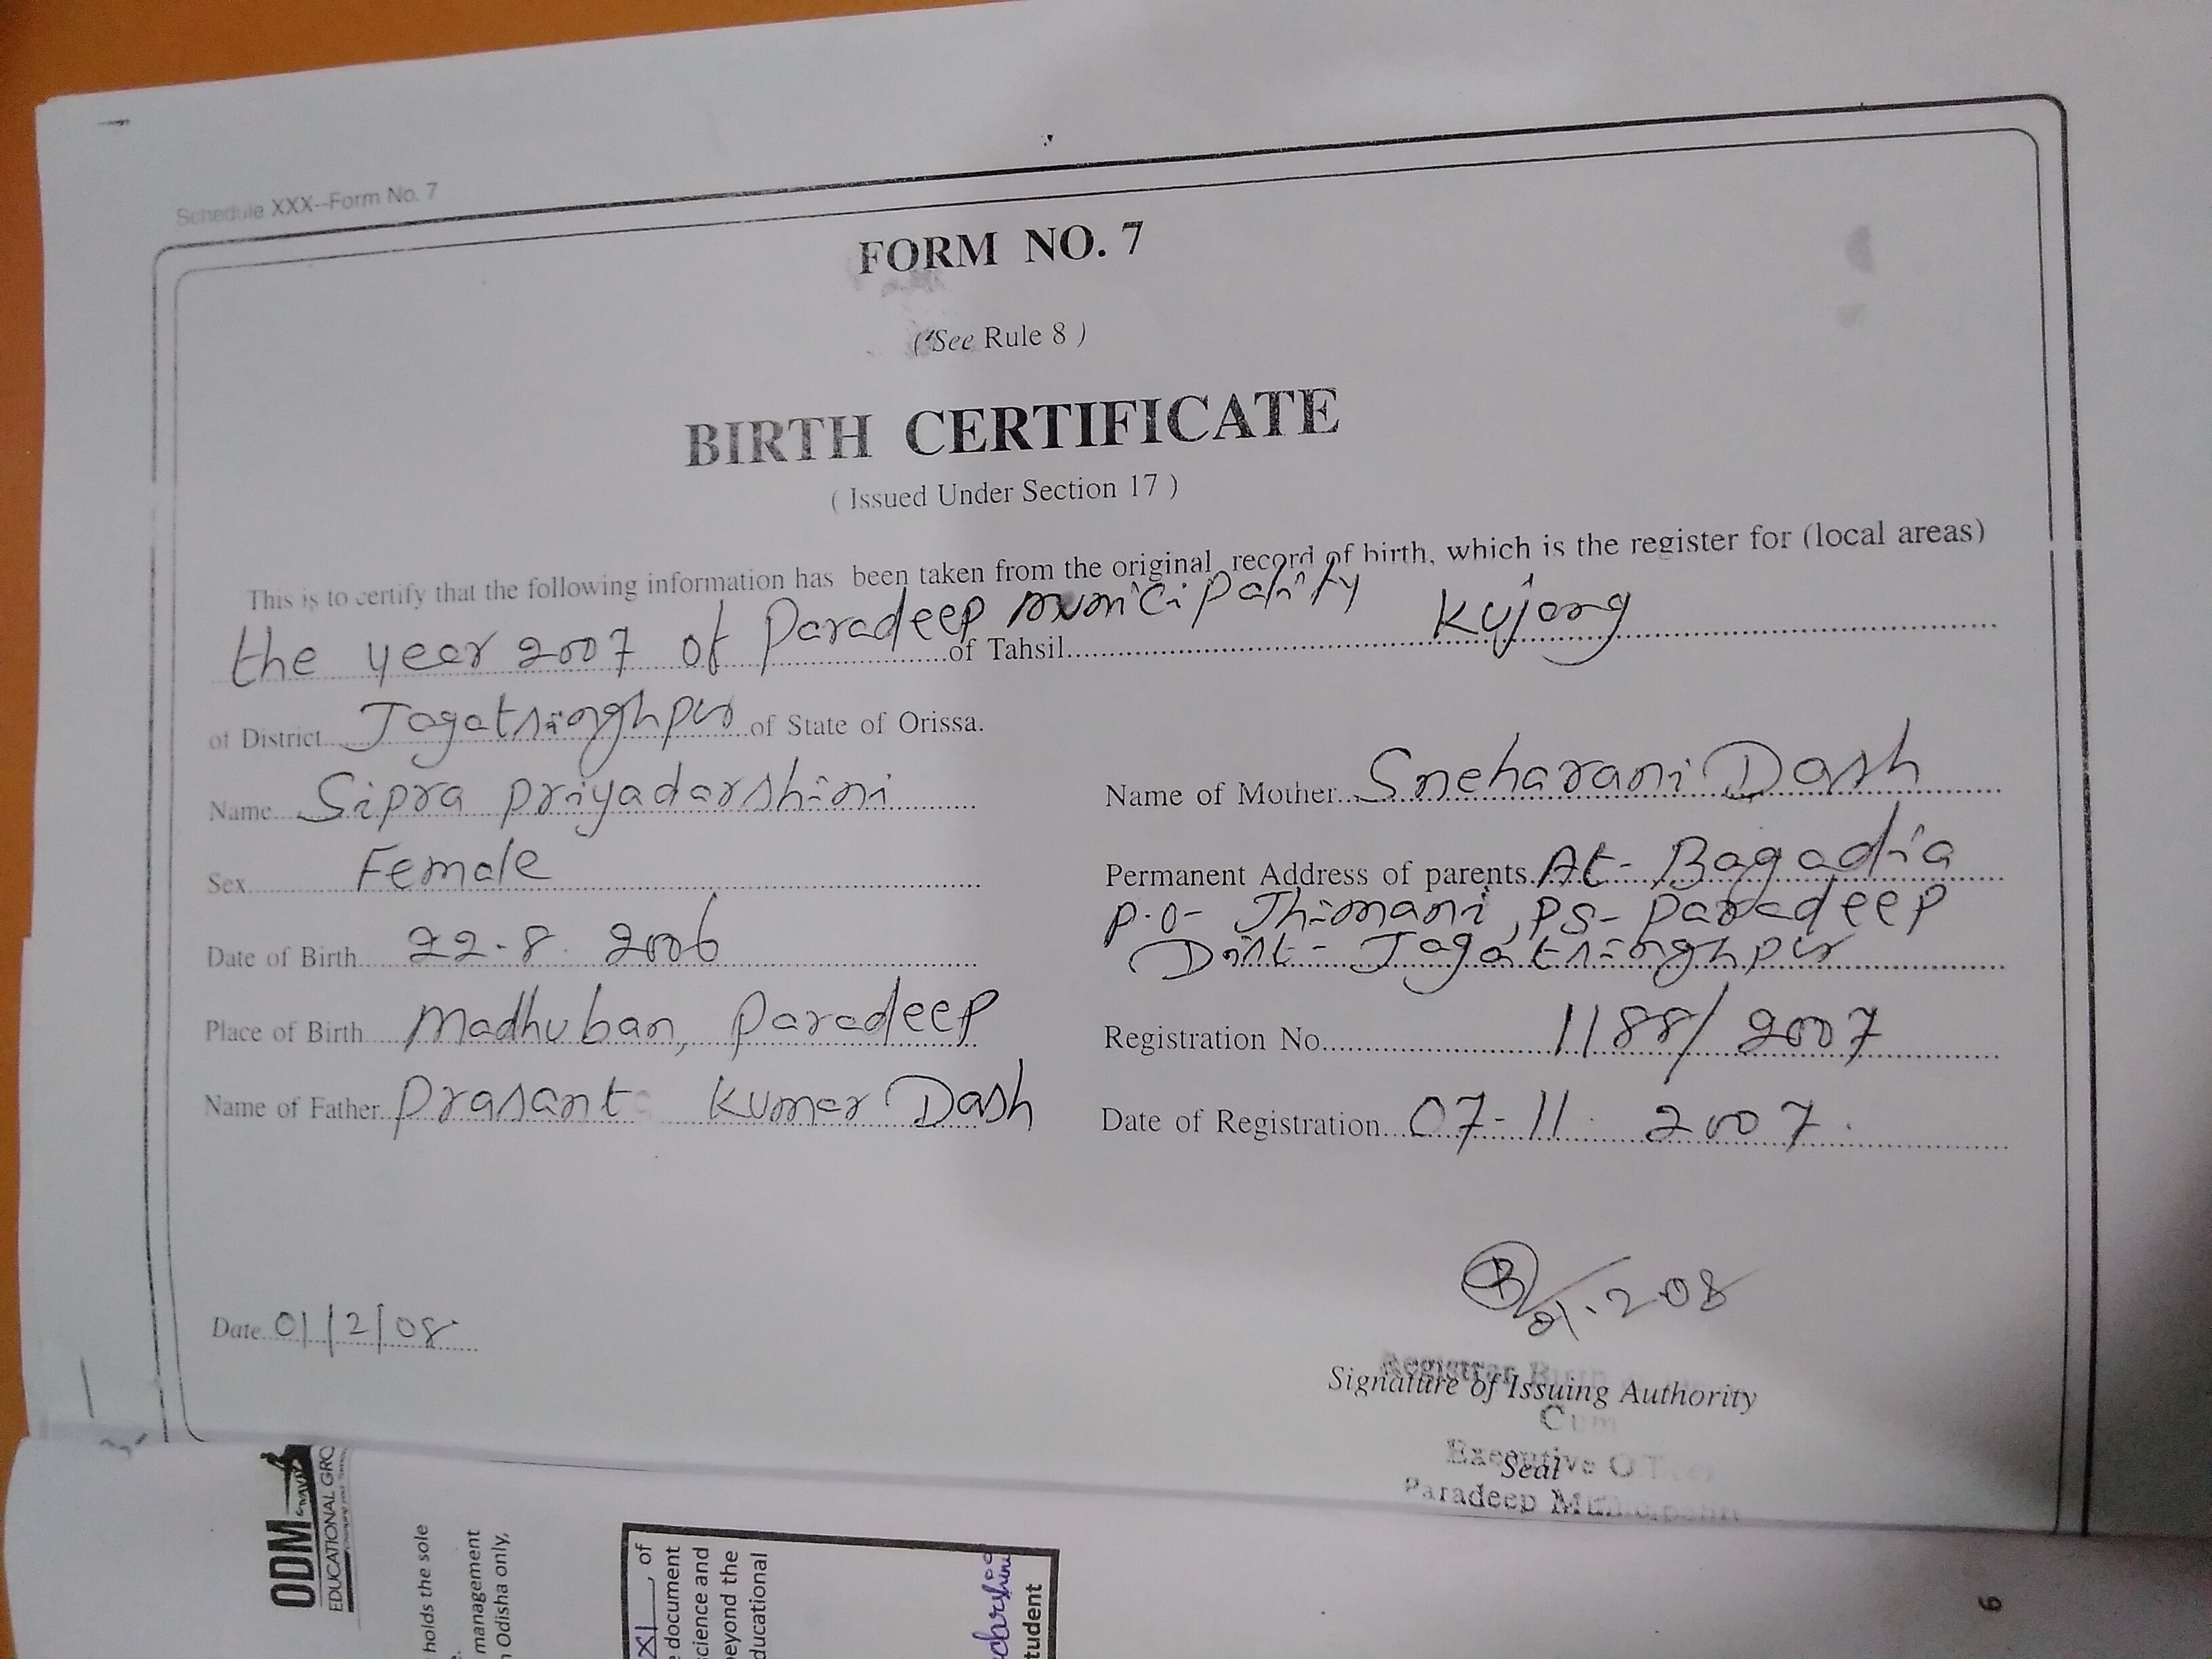 Schedule XXX--Form No. 7
FORM NO. 7
(See Rule 8 )
BIRTH CERTIFICATE
( Issued Under Section 17 )
This is to certify that the following information has been taken from the original record of birth, which is the register for (local areas)
the year 2007 of Paradeep municipality of Tahsil Kujang
of District Jagatsinghpur of State of Orissa.
Name Sipra Priyadarshini
Name of Mother Sneharani Dash
Sex Female
Permanent Address of parents At- Bagadia
P.O- Jhimani, PS- Paradeep
Dist- Jagatsinghpur
Date of Birth 22-8. 2006
Place of Birth Madhuban, Paradeep
Registration No 1188/2007
Name of Father Prasant Kumar Dash
Date of Registration 07-11. 2007.
Date 01/2/08
01.208
Registrar Birth
Signature of Issuing Authority
Cum
Executive Officer
Seal
Paradeep Municipality
ODM
EDUCATIONAL GRO
holds the sole
management
Odisha only,
XI, of
document
science and
beyond the
educational
tudent
6